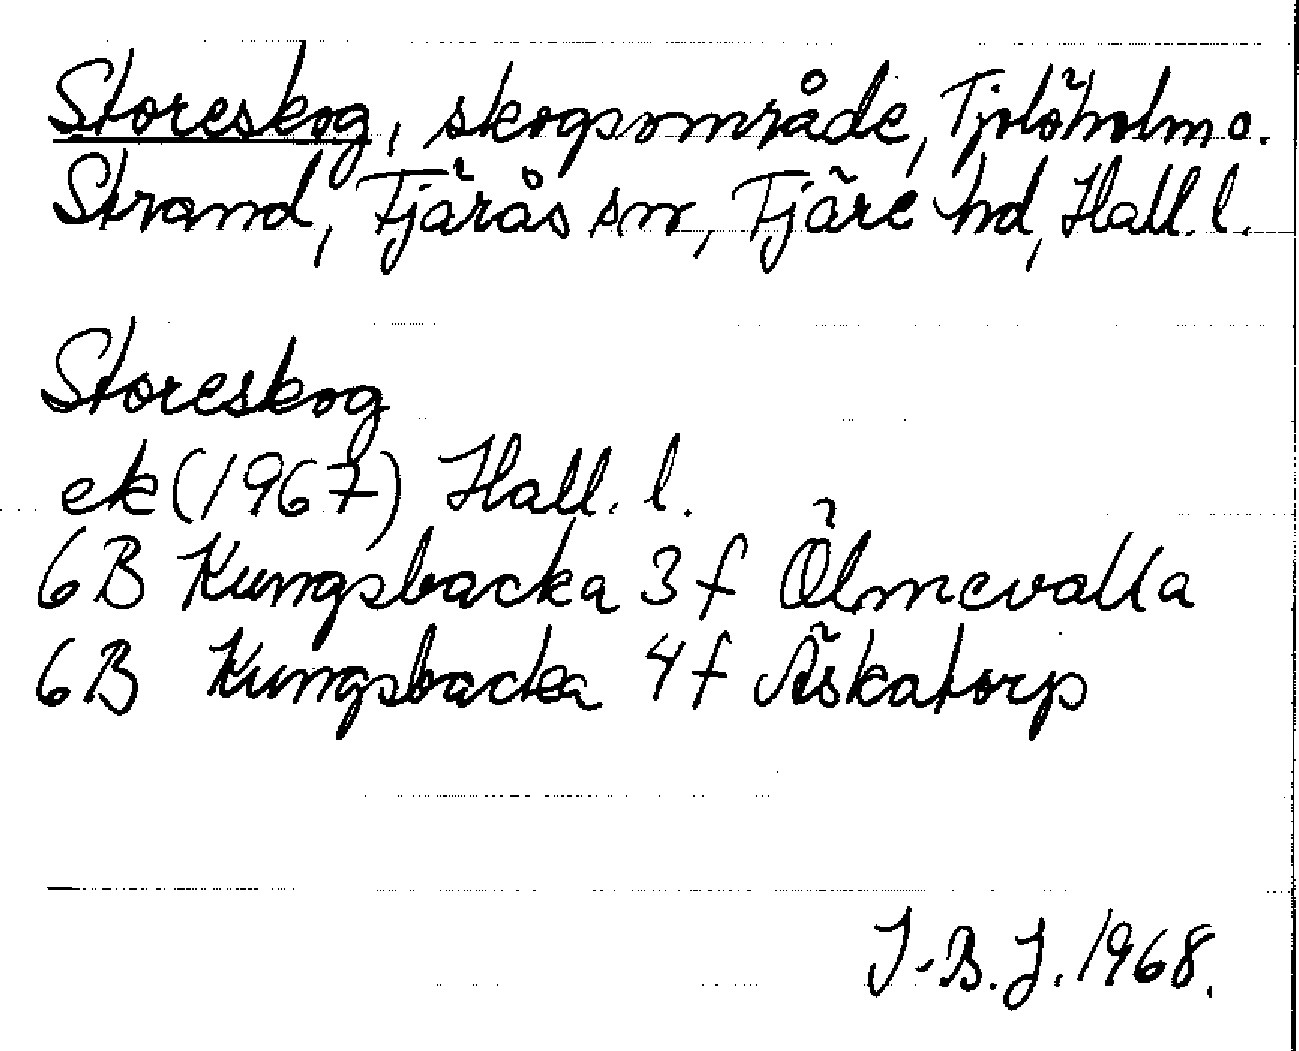 Storeskog, skogsområde, Tjolöholm o.
Strand, Fjärås sn, Fjäre hd, Hall. l.
Storeskog
ek (1967) Hall. l.
6B Kungsbacka 3f Ölmevalla
6B Kungsbacka 4f Äskatorp
I-B. J. 1968.